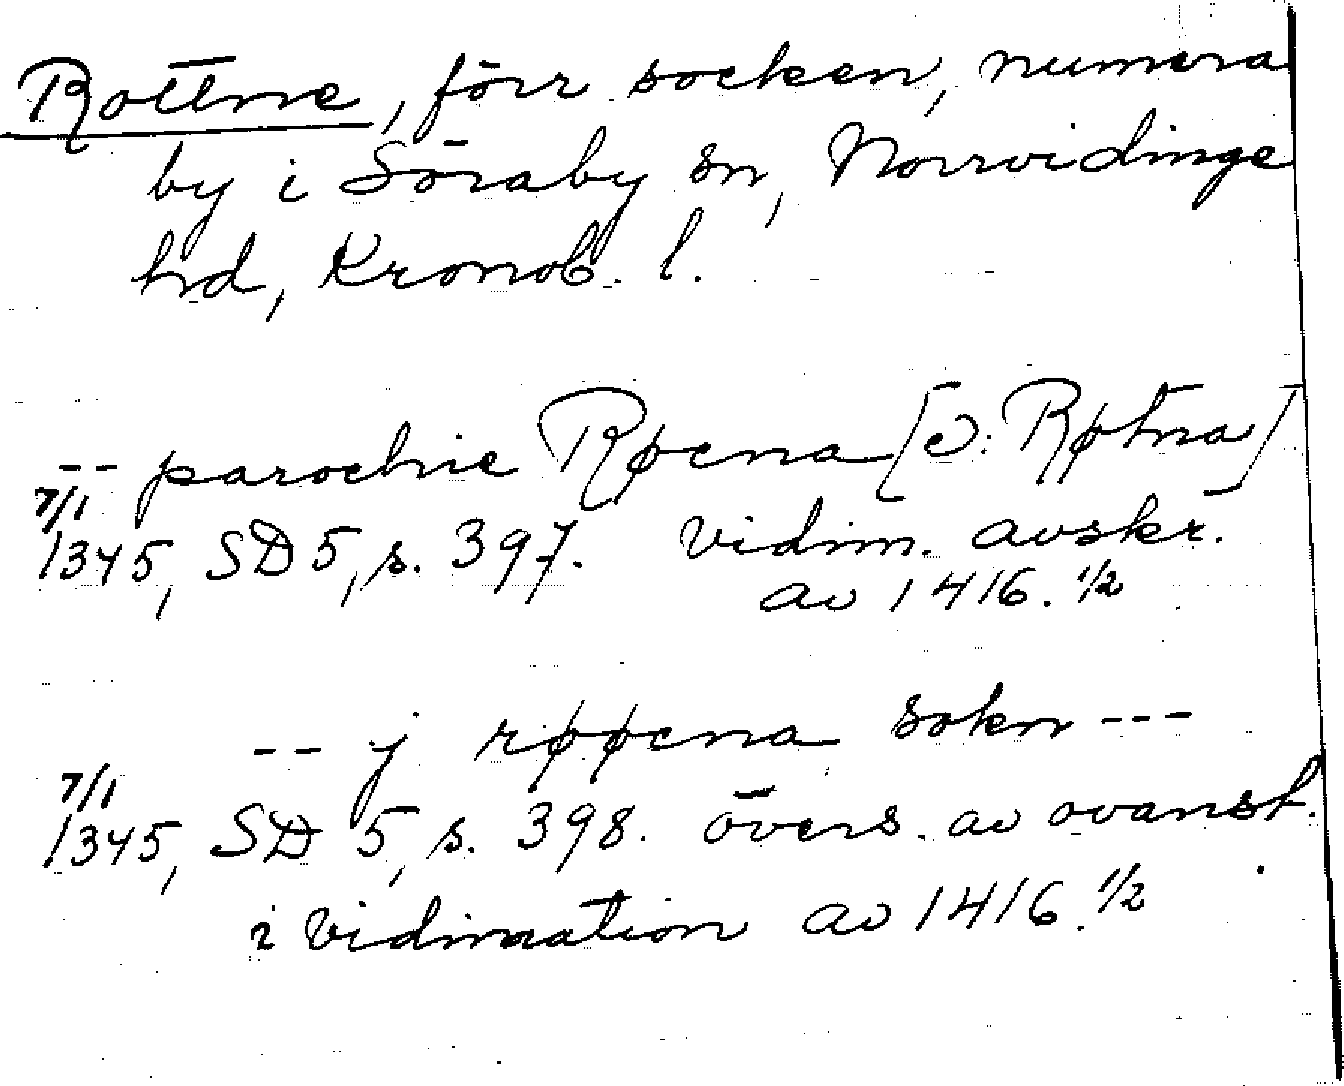 Rottne, förr socken, numera
by i Söraby sn, Norrvidinge
hd, Kronob. l.
-- parochie Røcna [ɔ: Røtna]
7/1
1345, SD 5, s. 397. Vidim. avskr.
av 1416. 1/2
-- j røøcna sokn ---
7/1
1345, SD 5, s. 398. övers. av ovanst.
i vidimation av 1416. 1/2